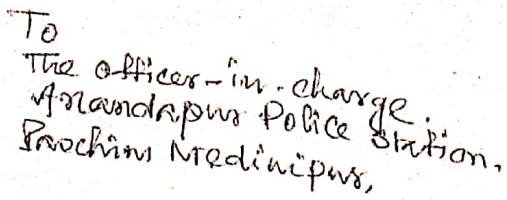 To
The officer-in-charge.
Anandapur Police Station.
Paschim Medinipur,